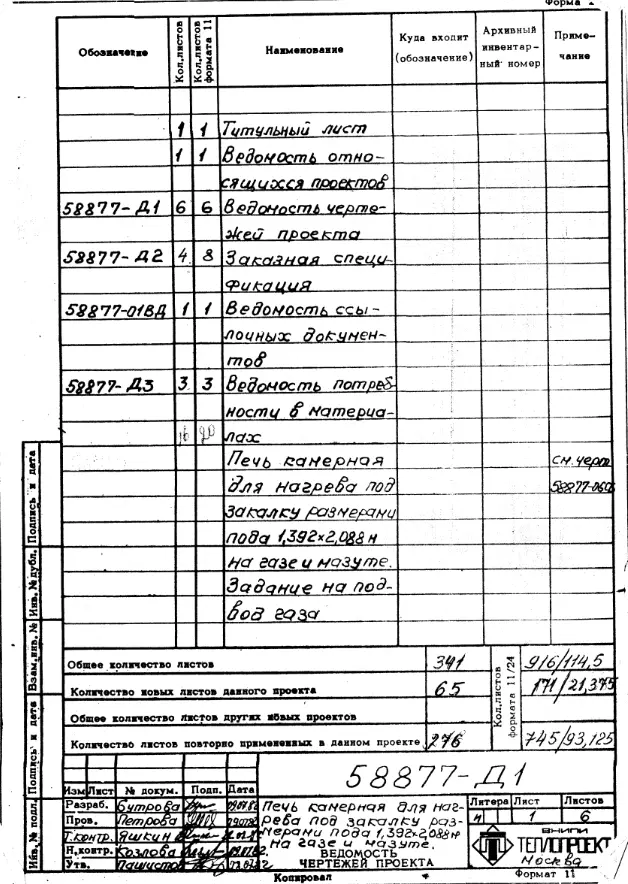 Форма
Обозначение
Кол.листов
Кол.листов формата 11
Наименование
Куда входит (обозначение)
Архивный инвентар- ный номер
Приме- чание
1 1 Титульный лист
1 1 Ведомость отно-
сящихся проектов
58877-Д1 6 6 Ведомость черте-
жей проекта
58877-Д2 4 8 Заказная специ-
фикация
58877-01ВД 1 1 Ведомость ссы-
лочных докумен-
тов
58877-Д3 3 3 Ведомость потреб-
ности в материа-
16 20 лах
Печь камерная см. черт
для нагрева под 58877-
закалку размерами
пода 1,392×2,088 м
на газе и мазуте.
Задание на под-
вод газа
Общее количество листов 341 Кол.листов формата 11/24 916/114,5
Количество новых листов данного проекта 65 171/21,375
Общее количество листов других новых проектов
Количество листов повторно примененных в данном проекте 276 745/93,125
58877-Д1
Изм Лист № докум. Подп. Дата
Разраб. Бутрова
Пров. Петрова
Т.контр. Яшкин
Н.контр. Козлова
Утв.
Печь камерная для наг-
рева под закалку раз-
мерами пода 1,392×2,088 м
на газе и мазуте.
ВЕДОМОСТЬ
ЧЕРТЕЖЕЙ ПРОЕКТА
Литера Лист Листов
И 1 6
ВНИПИ
ТЕПЛОПРОЕКТ
Москва
Копировал
Формат 11
Подпись и дата
Инв. № дубл.
Взам. инв. №
Подпись и дата
Инв. № подл.